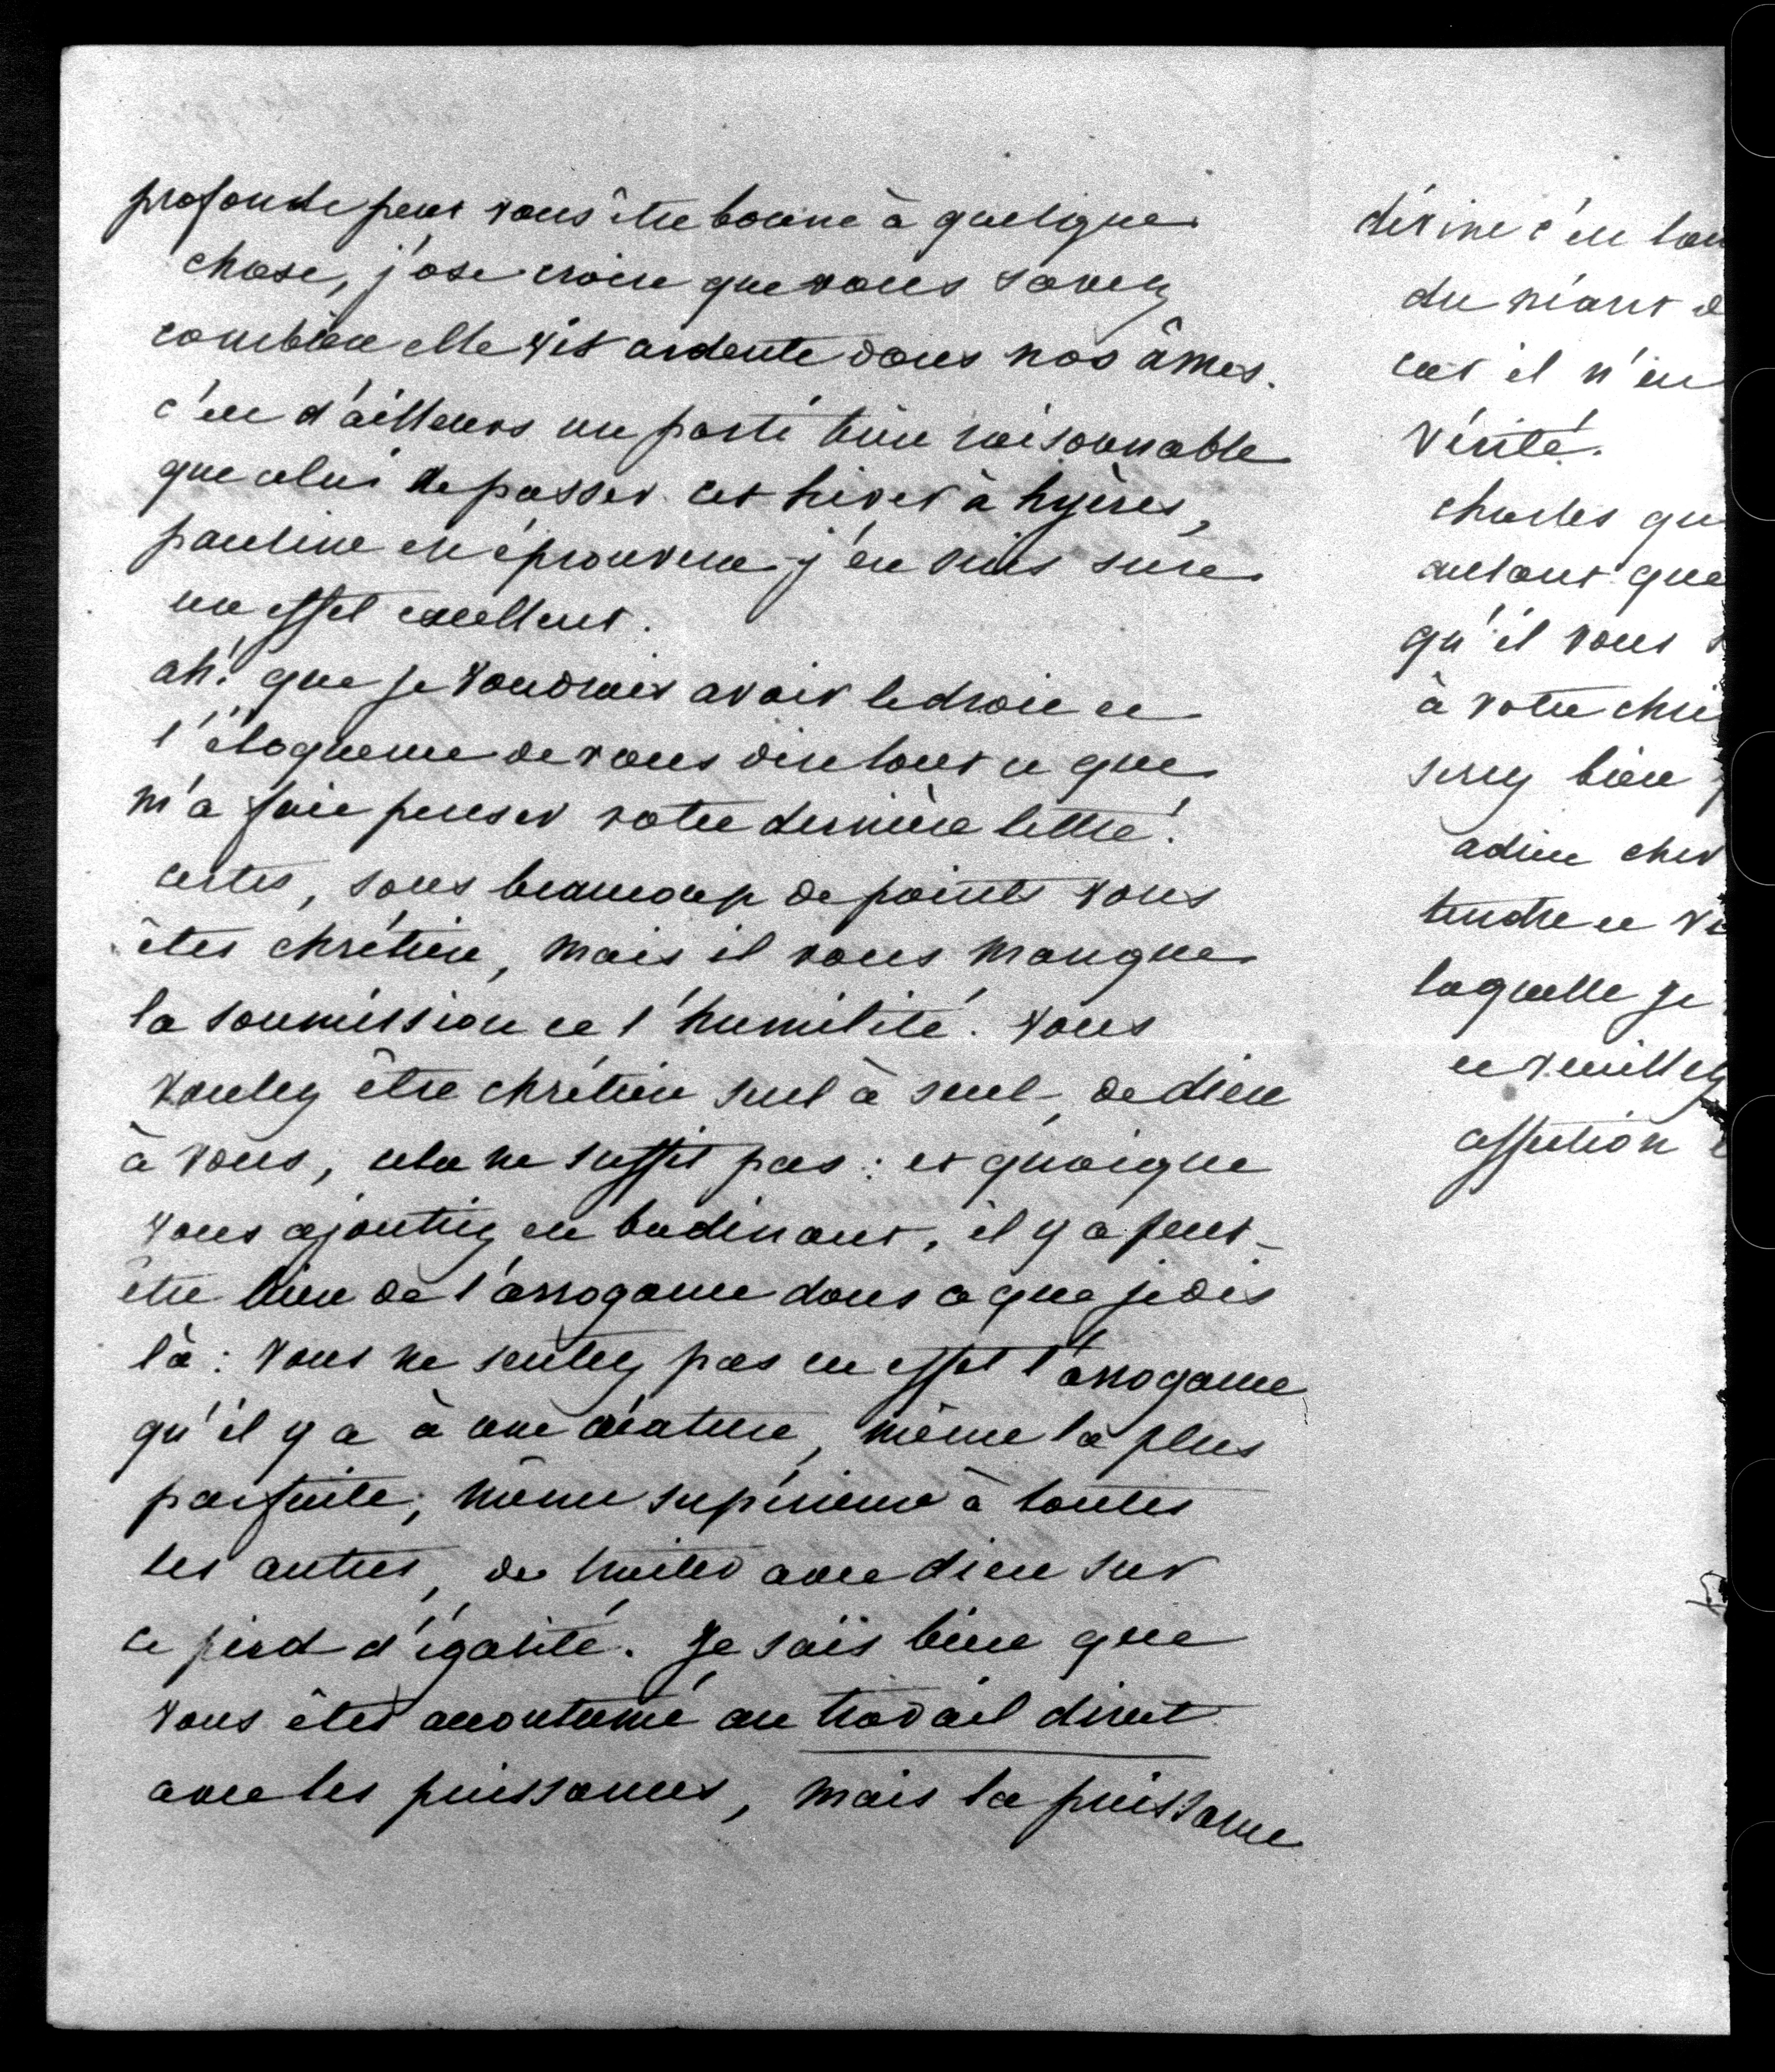 profonde peut vous être bonne à quelque
chose, j'ose croire que vous savez
combien elle vit ardente dans nos âmes.
c'est d'ailleurs un parti bien raisonnable
que celui de passer cet hiver à hyères,
pauline en éprouvera j'en suis sure
un effet excellent.
ah! que je voudrais avoir le droit et
l'éloquence de vous dire tout ce que
m'a fait penser votre dernière lettre!
certes, sous beaucoup de points vous
êtes chrétien, mais il vous manque
la soumission et l'humilité. vous
voulez être chrétien seul à seul, de dieu
à vous, cela ne suffit pas : et quoique
vous ajoutiez en badinant, il y a peut-
être bien de l'arrogance dans ce que je dis
là : vous ne sentez pas en effet l'arrogance
qu'il y a à une créature, même la plus
parfaite, même supérieure à toutes
les autres, de traiter avec dieu sur
ce pied d'égalité. Je sais bien que
vous êtes accoutumé au travail direct
avec les puissances, mais la puissance
divine c'est
du néant
car il n'en
vérité.
charles
autant que
qu'il vous
à votre
serez bien
adieu cher
tendre et
laquelle je
et veuillez
affection